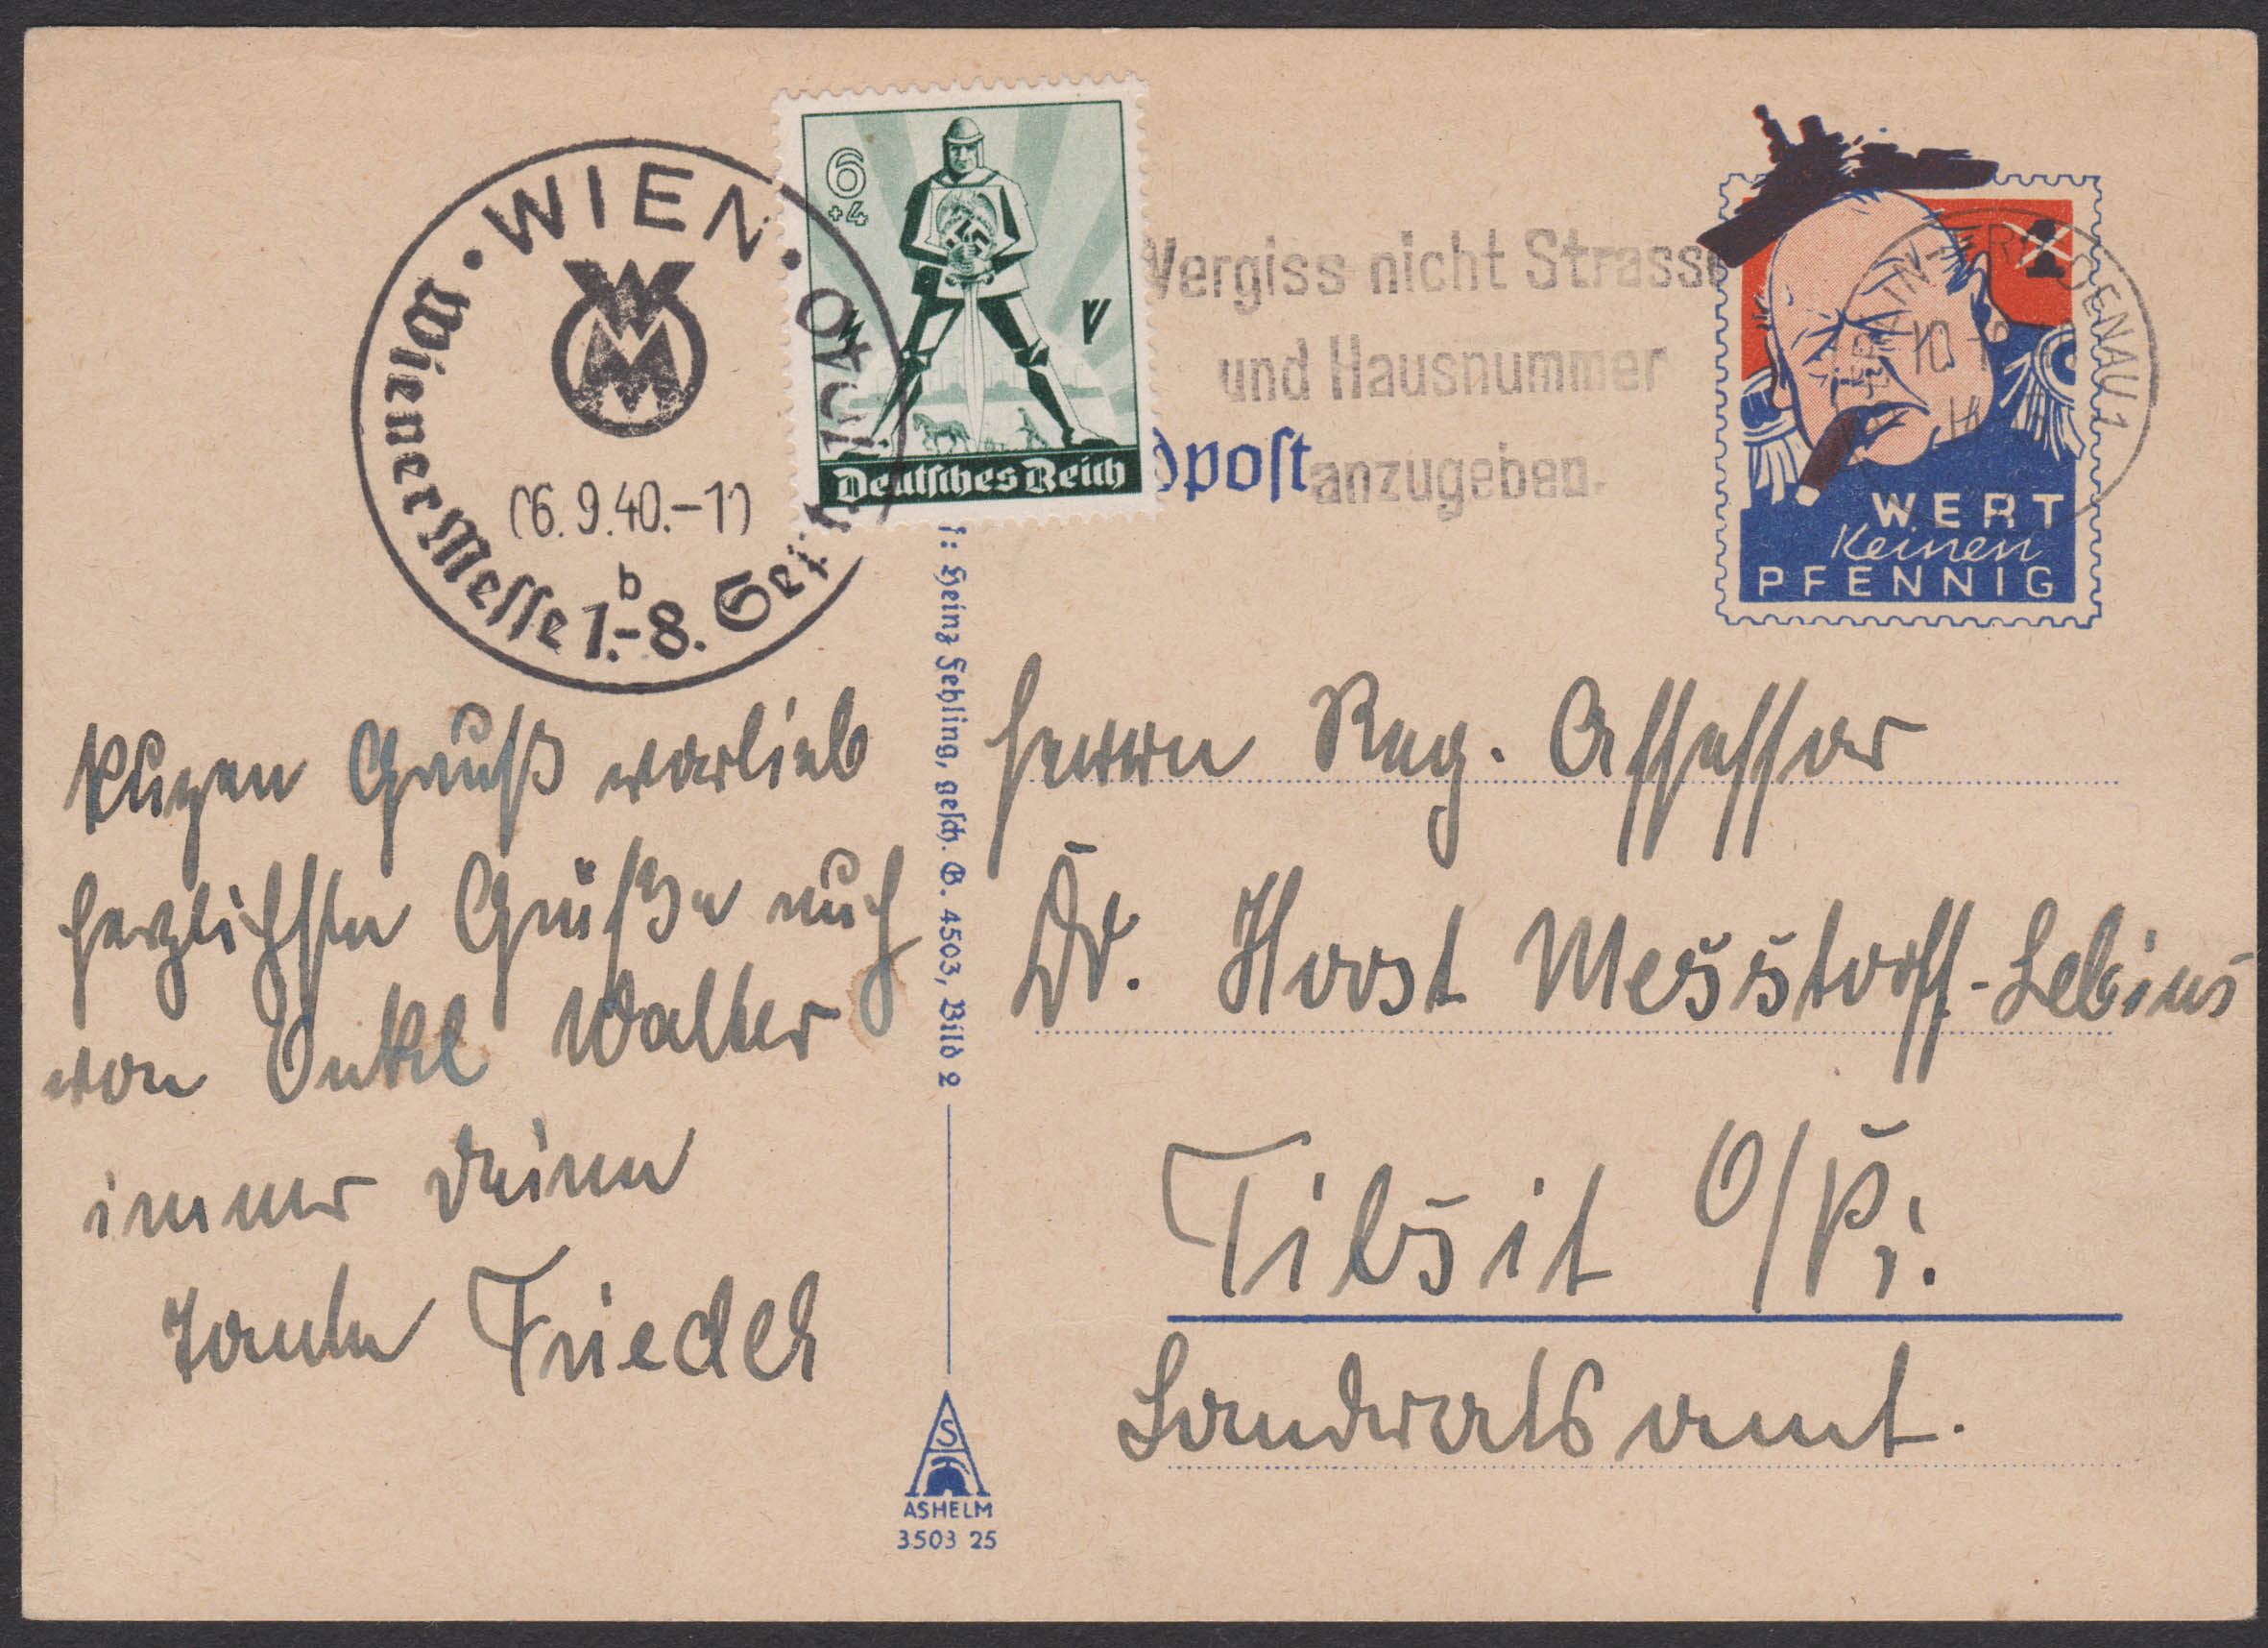 WIEN
WM
Wiener Messe 1.-8. Sept. 1940
06.9.40.-1
b
6
+4
Deutsches Reich
Vergiss nicht Strasse
und Hausnummer
anzugeben.
dpost
1
10
DENAU 1
WERT
Keinen
PFENNIG
f: Heinz Fehling, gesch. G. 4503, Bild 2
Gruß vorlieb
herzlichste Grüße auch
von Onkel Walter
immer Deine
Tante Friedel
Herrn Reg. Assessor
Dr. Horst Messtorff-Lebius
Tilsit O/Pr.
Landratsamt.
S
ASHELM
3503 25